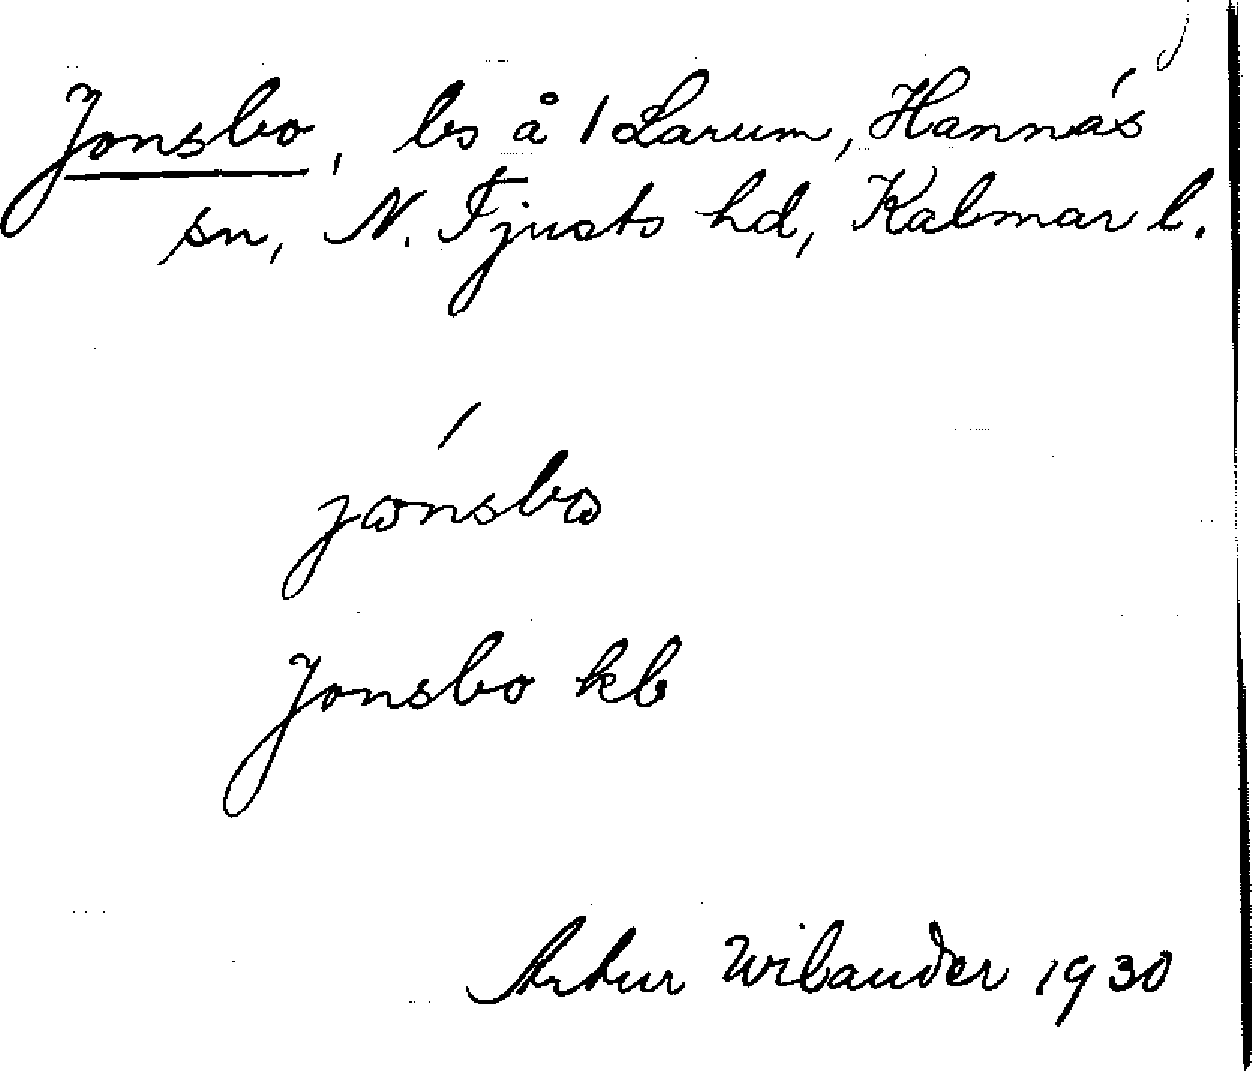 Jonsbo, ls å 1 Larum, Hannäs
sn, N. Tjusts hd, Kalmar l.
jɷnsbɷ
Jonsbo kb
Artur Wilander 1930